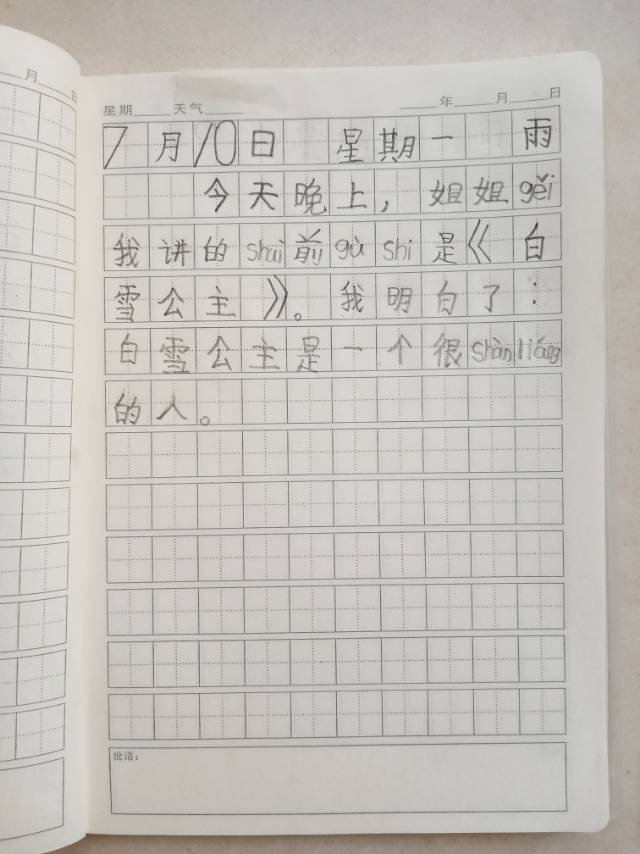 月 日
星期 天气 年 月 日
7月10日 星期一 雨
今天晚上，姐姐gěi
我讲的shuì前gù shi是《白
雪公主》。我明白了：
白雪公主是一个很shàn liáng
的人。
批语：